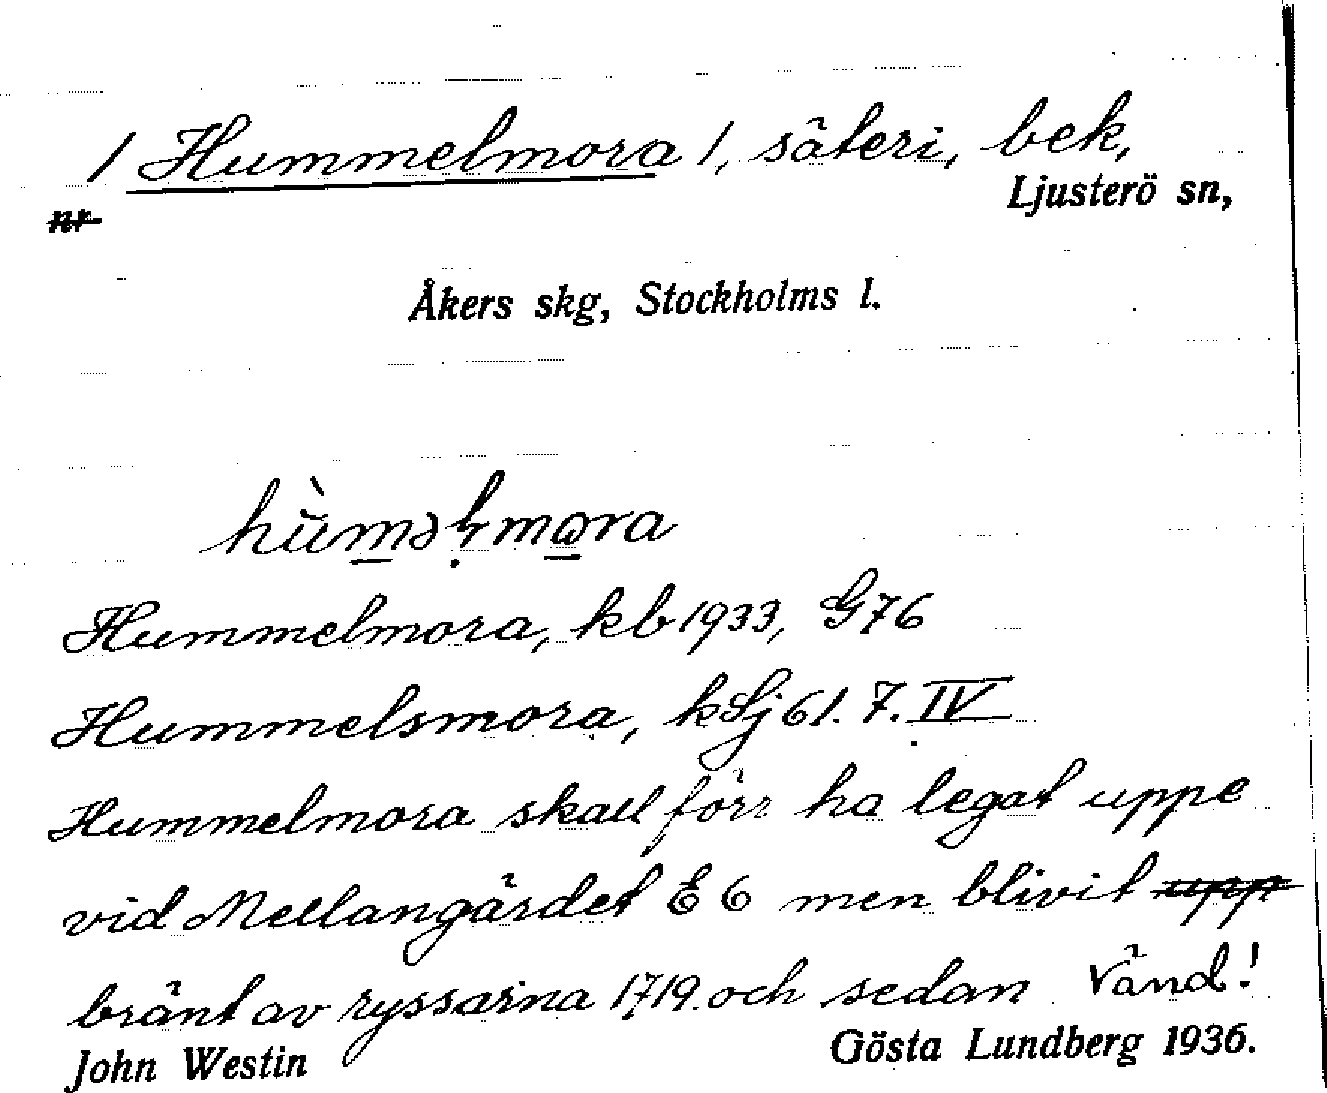 / Hummelmora /, säteri, bek,
Ljusterö sn,
nr
Åkers skg, Stockholms l.
Hummelmora, kb 1933, G76
Hummelsmora, kLj 61. 7. IV
Hummelmora skall förr ha legat uppe
vid Mellangärdet E 6 men blivit upp
bränt av ryssarna 1719. och sedan Vänd!
John Westin
Gösta Lundberg 1936.